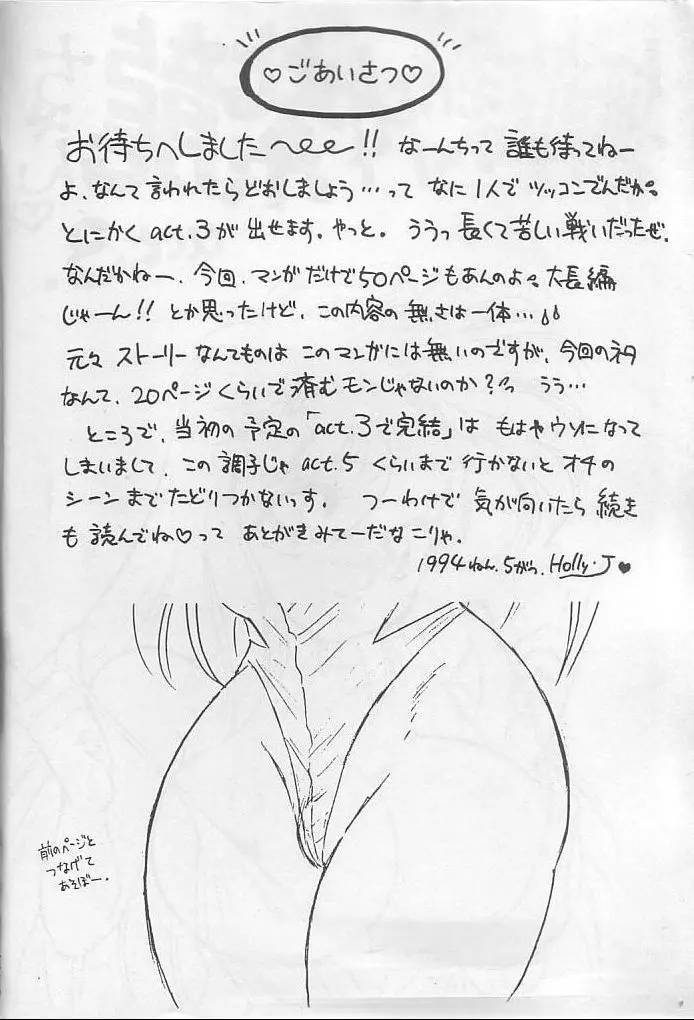 ♡ごあいさつ♡
お待ちへしました〜ee!! なーんちって 誰も待ってねー
よ、なんて言われたらどおしましょう…って なに1人で ツッコンでんだか。
とにかく act.3が 出せます。やっと。ううっ 長くて苦しい戦いだったぜ。
なんだかねー、今回、マンガだけで50ページもあんのよ。大長編
じゃーん!! とか思ったけど、この内容の無さは一体…
元々 ストーリーなんてものは このマンガには無いのですが、今回のネタ
なんて、20ページくらいで済むモンじゃないのか?っ うう…
ところで、当初の予定の「act.3で完結」は もはやウソになって
しまいまして、この調子じゃ act.5 くらいまで行かないと オチの
シーンまでたどりつかないっす。 つーわけで 気が向いたら続き
も 読んでね♡って あとがきみてーだなこりゃ。
1994ねん.5がつ. Holly・J♥
前のページと
つなげて
あそぼー.